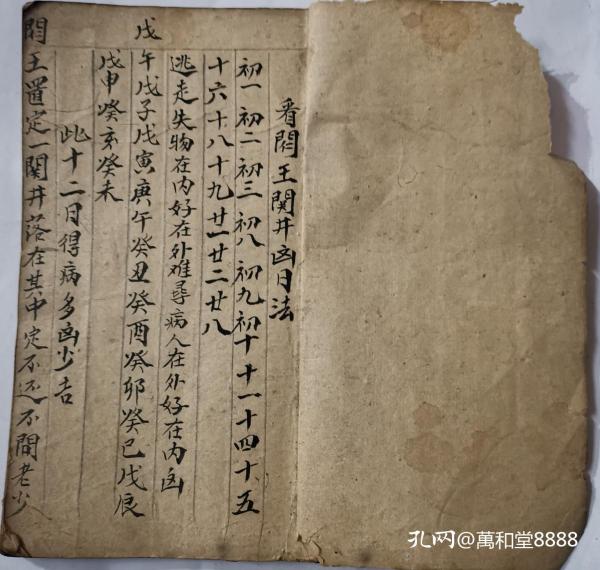 看閻王関井凶日法
初一初二初三初八初九初十十一十四十五
十六十八十九廿一廿二廿八
逃走失物在内好在外难尋病人在外好在内凶
戊午戊子戊寅庚午癸丑癸酉癸卯癸巳戊辰
戊申癸亥癸未
此十二日得病多凶少吉
閻王置定一関井落在其中定不还不問老少
孔网@萬和堂8888